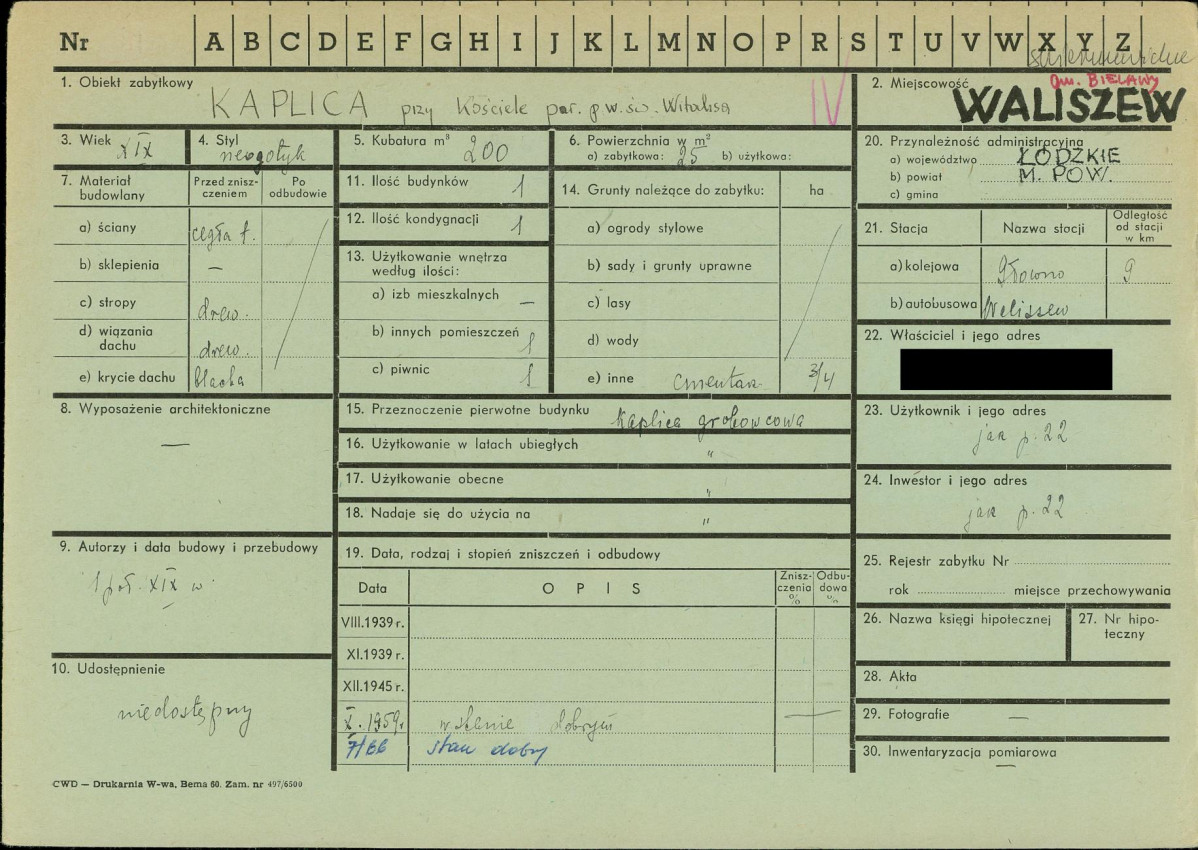 Nr A B C D E F G H I J K L M N O P R S T U V W X Y Z
1. Obiekt zabytkowy
KAPLICA przy Kościele par. p w. św. Witalisa
IV
2. Miejscowość
gm. BIELAWY
WALISZEW
3. Wiek XIX
4. Styl neogotyk
5. Kubatura m³ 200
6. Powierzchnia w m²
a) zabytkowa: 25 b) użytkowa:
7. Materiał budowlany
Przed zniszczeniem
Po odbudowie
a) ściany cegła
b) sklepienia —
c) stropy drew.
d) wiązania dachu drew.
e) krycie dachu blacha
8. Wyposażenie architektoniczne
—
9. Autorzy i data budowy i przebudowy
1 poł. XIX w
10. Udostępnienie
niedostępny
11. Ilość budynków 1
12. Ilość kondygnacji 1
13. Użytkowanie wnętrza według ilości:
a) izb mieszkalnych —
b) innych pomieszczeń 1
c) piwnic 1
14. Grunty należące do zabytku: ha
a) ogrody stylowe
b) sady i grunty uprawne
c) lasy
d) wody
e) inne cmentarz 3/4
15. Przeznaczenie pierwotne budynku kaplica grobowcowa
16. Użytkowanie w latach ubiegłych "
17. Użytkowanie obecne "
18. Nadaje się do użycia na "
19. Data, rodzaj i stopień zniszczeń i odbudowy
Data
O P I S
Zniszczenia %
Odbudowa %
VIII.1939 r.
XI.1939 r.
XII.1945 r.
X. 1959 r w stanie dobrym —
7/66 stan dobry
20. Przynależność administracyjna
a) województwo ŁÓDZKIE
b) powiat M. POW.
c) gmina
21. Stacja
Nazwa stacji
Odległość od stacji w km
a) kolejowa Głowno 9
b) autobusowa Waliszew
22. Właściciel i jego adres
23. Użytkownik i jego adres
jak p. 22
24. Inwestor i jego adres
jak p. 22
25. Rejestr zabytku Nr
rok miejsce przechowywania
26. Nazwa księgi hipotecznej
27. Nr hipoteczny
28. Akta
29. Fotografie —
30. Inwentaryzacja pomiarowa
—
CWD — Drukarnia W-wa, Bema 60. Zam. nr 497/6500